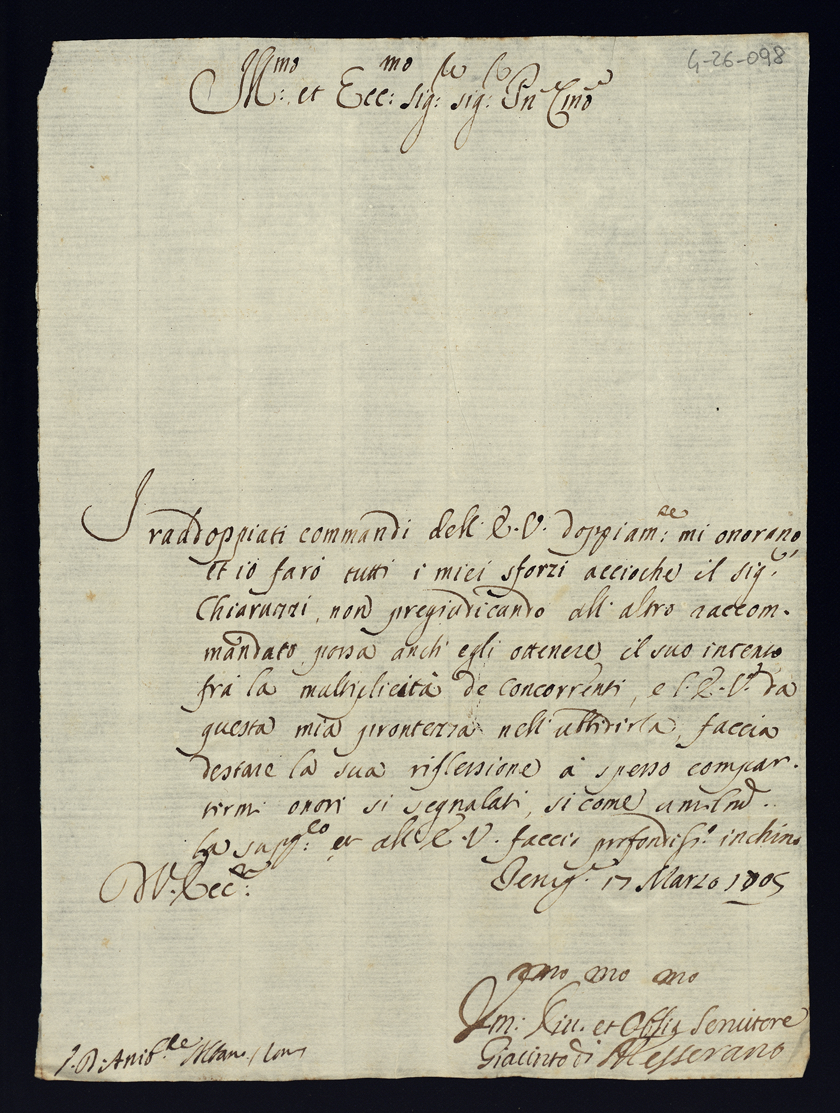 4-26-098
Ill:mo et Ecc:mo Sig:re Sig:re Pn Cmo
I raddoppiati commandi dell' E.V. doppiam:te mi onorano,
et io farò tutti i miei sforzi accioche il sig:r
Chiaruzzi, non pregiudicando all' altro raccom-
mandato, possa anch' egli ottenere il suo intento
frà la multiplicità de Concorrenti, e l' E.V. da
questa mia prontezza nell' ubbidirla, faccia
destare la sua riflessione à spesso compar-
tirmi onori si segnalati, si come
la supp:co et all' E.V. faccio profondiss:o inchino
D V. Ecc:a
17 Marzo 1705
mo mo mo
et Servitore
Giacinto di Messerano
S. D: Anib:le Alban